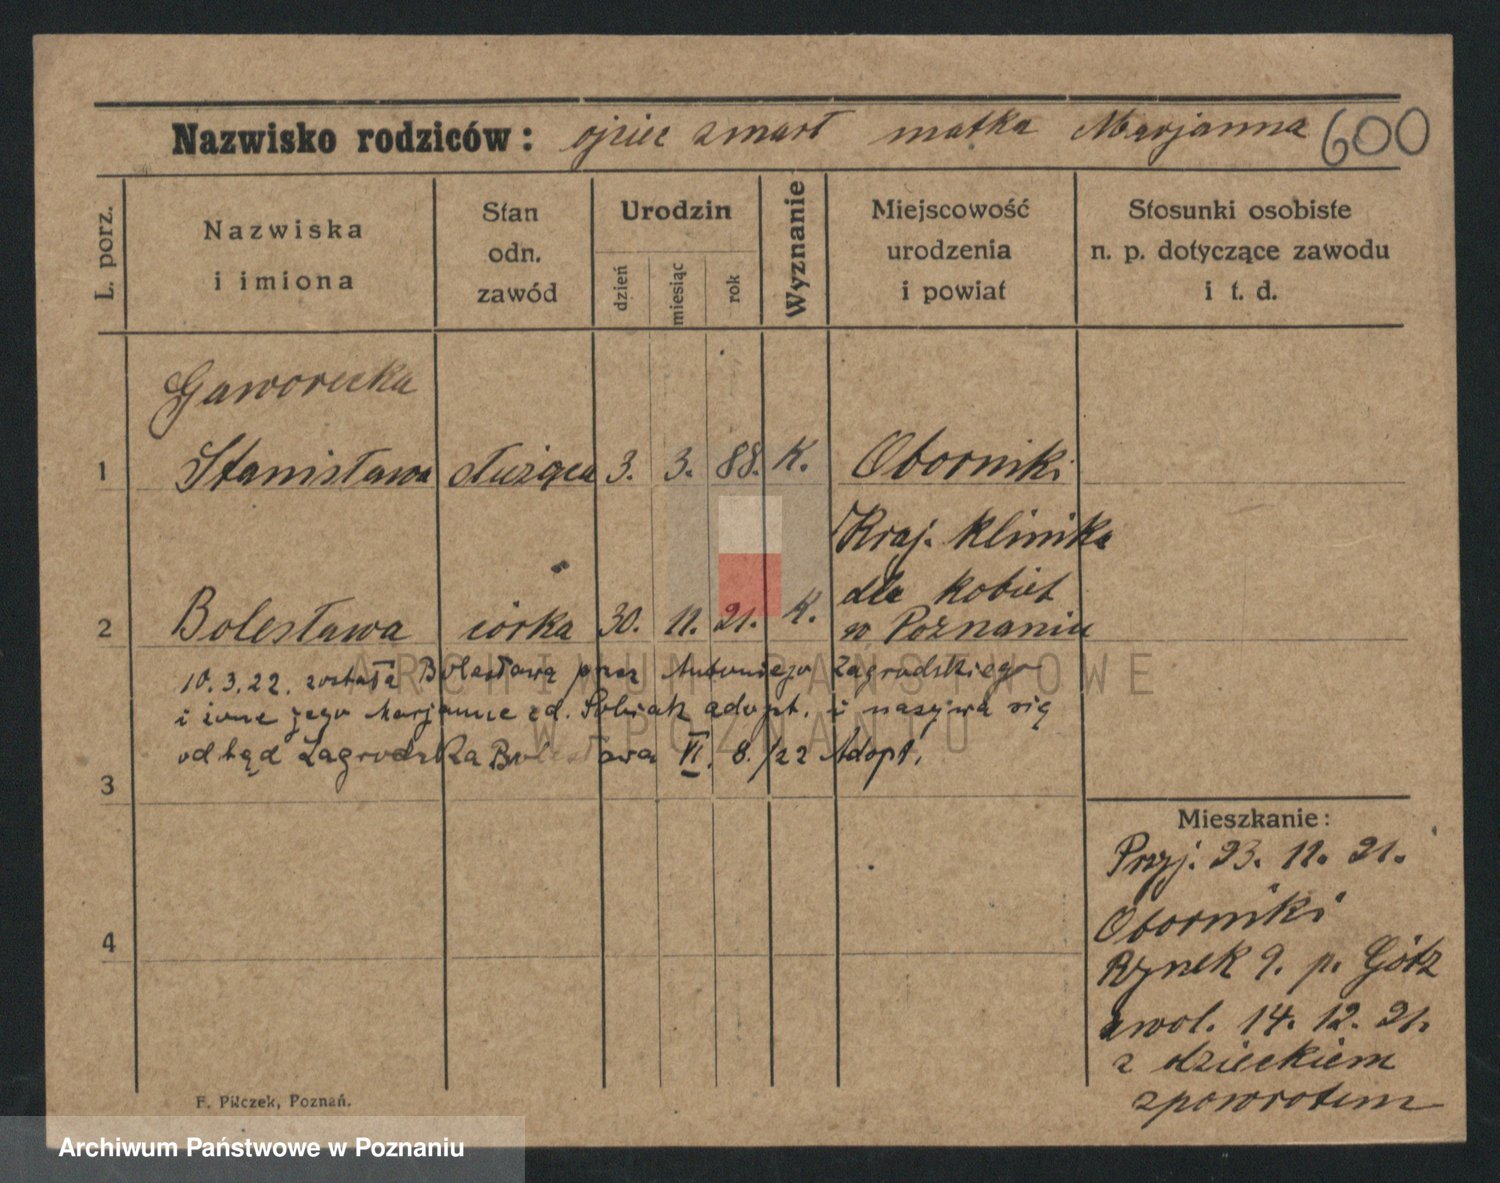 Nazwisko rodziców: ojciec zmarł matka Marjanna 600
L. porz.
Nazwiska
i imiona
Stan
odn.
zawód
Urodzin
dzień
miesiąc
rok
Wyznanie
Miejscowość
urodzenia
i powiat
Stosunki osobiste
n. p. dotyczące zawodu
i t. d.
Gaworecka
1 Stanisława służąca 3. 3. 88. K. Oborniki
Kraj. klinika
dla kobiet
2 Bolesława córka 30. 11. 21. K. w Poznaniu
10. 3. 22. została Bolesława przez Antoniego Zagrodzkiego
i żonę jego Marjannę zd. Sobiak adopt. i nazywa się
odtąd Zagrodzka Bolesława VI. 8./22 Adopt.
3
Mieszkanie:
Przyj. 23. 11. 21.
Oborniki
4
Rynek 9. p. Götz
zwol. 14. 12. 21.
z dzieckiem
zpowrotem
F. Pilczek, Poznań.
ARCHIWUM PAŃSTWOWE
W POZNANIU
Archiwum Państwowe w Poznaniu